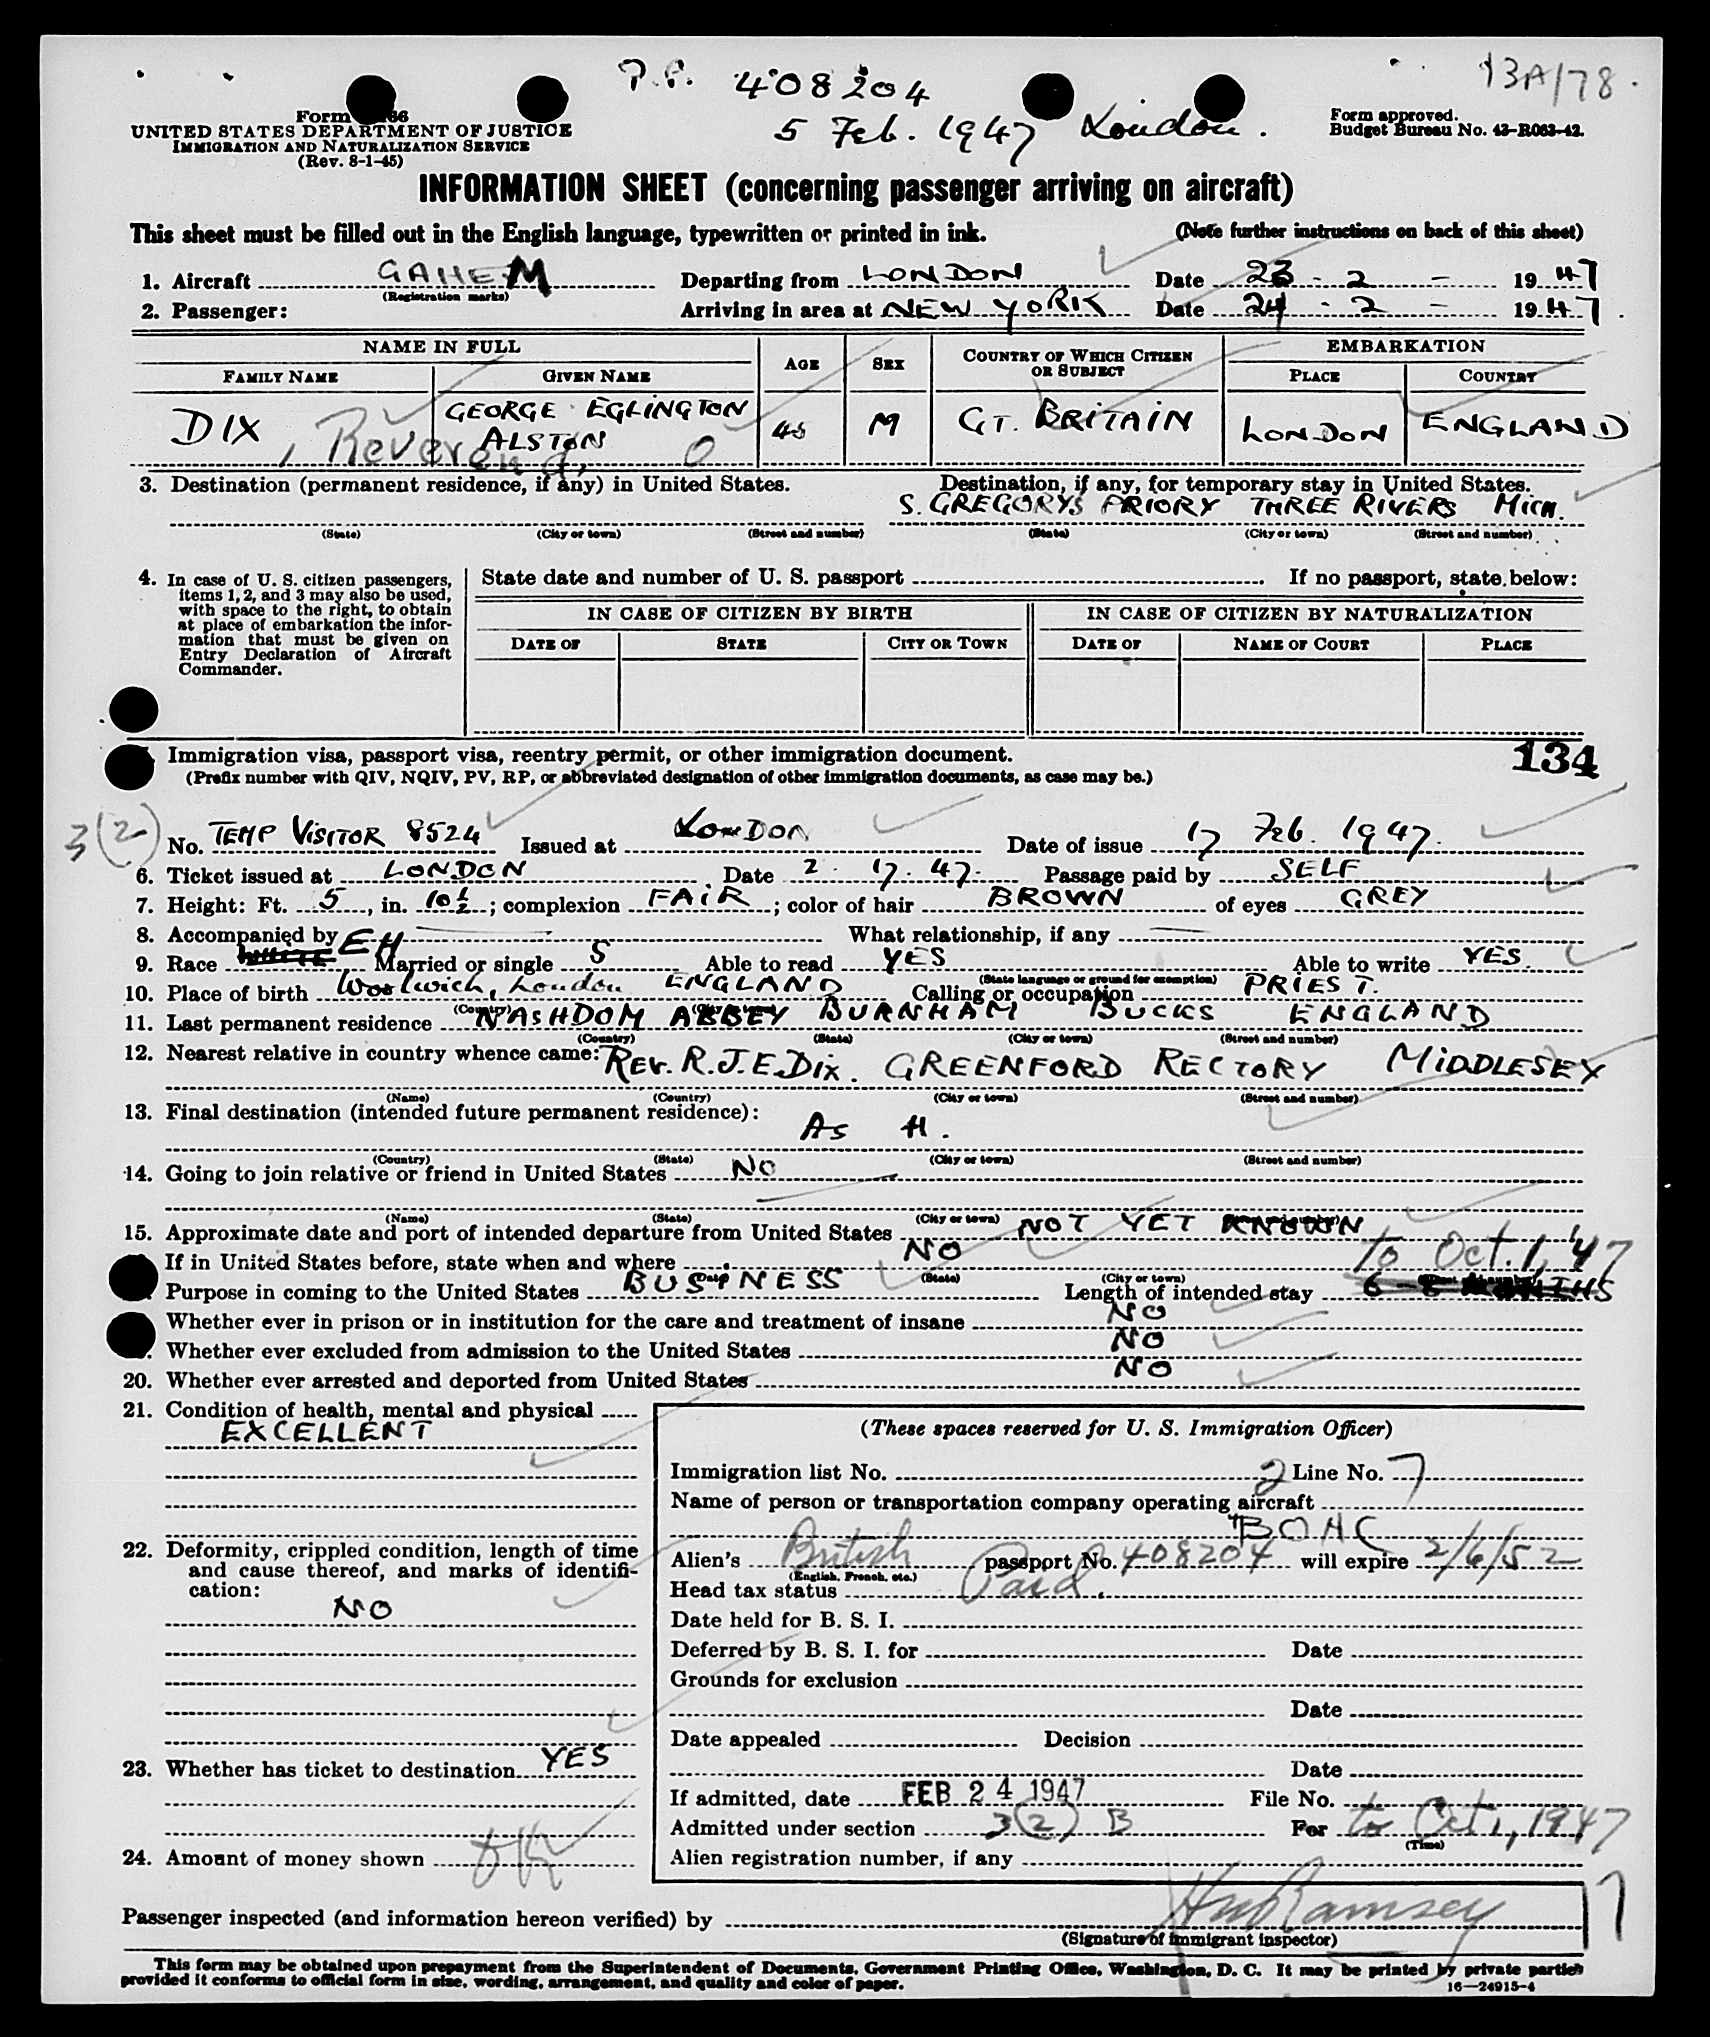 P.P. 408204 13A/78.
5 Feb. 1947 London.
Form
UNITED STATES DEPARTMENT OF JUSTICE
IMMIGRATION AND NATURALIZATION SERVICE
(Rev. 8-1-45)
Form approved.
Budget Bureau No. 43-R063-42.
INFORMATION SHEET (concerning passenger arriving on aircraft)
This sheet must be filled out in the English language, typewritten or printed in ink. (Note further instructions on back of this sheet)
1. Aircraft GAHEM Departing from LONDON Date 23 - 2 - 1947
(Registration marks)
2. Passenger: Arriving in area at NEW YORK Date 24 - 2 - 1947.
NAME IN FULL AGE SEX COUNTRY OF WHICH CITIZEN OR SUBJECT EMBARKATION
FAMILY NAME GIVEN NAME PLACE COUNTRY
DIX, Reverend, GEORGE EGLINGTON ALSTON 45 M GT. BRITAIN LONDON ENGLAND
3. Destination (permanent residence, if any) in United States. Destination, if any, for temporary stay in United States.
S. GREGORYS PRIORY THREE RIVERS MICH.
(State) (City or town) (Street and number) (State) (City or town) (Street and number)
4. In case of U. S. citizen passengers, items 1, 2, and 3 may also be used, with space to the right, to obtain at place of embarkation the information that must be given on Entry Declaration of Aircraft Commander.
State date and number of U. S. passport If no passport, state below:
IN CASE OF CITIZEN BY BIRTH IN CASE OF CITIZEN BY NATURALIZATION
DATE OF STATE CITY OR TOWN DATE OF NAME OF COURT PLACE
Immigration visa, passport visa, reentry permit, or other immigration document. 134
(Prefix number with QIV, NQIV, PV, RP, or abbreviated designation of other immigration documents, as case may be.)
3(2) No. TEMP VISITOR 8524 Issued at LONDON Date of issue 17 Feb. 1947.
6. Ticket issued at LONDON Date 2. 17. 47. Passage paid by SELF
7. Height: Ft. 5, in. 10½; complexion FAIR; color of hair BROWN of eyes GREY
8. Accompanied by What relationship, if any
9. Race EH Married or single S Able to read YES Able to write YES.
(State language or ground for exemption)
10. Place of birth Woolwich, London ENGLAND Calling or occupation PRIEST.
(Country) (City or town)
11. Last permanent residence NASHDOM ABBEY BURNHAM BUCKS ENGLAND
(Country) (State) (City or town) (Street and number)
12. Nearest relative in country whence came: REV. R.J.E. Dix. GREENFORD RECTORY MIDDLESEX
(Name) (Country) (City or town) (Street and number)
13. Final destination (intended future permanent residence):
As 11.
(Country) (State) (City or town) (Street and number)
14. Going to join relative or friend in United States NO
(Name) (State) (City or town)
15. Approximate date and port of intended departure from United States NOT YET KNOWN
If in United States before, state when and where NO to Oct. 1, '47
(State) (City or town)
Purpose in coming to the United States BUSINESS Length of intended stay 6-8 MONTHS
Whether ever in prison or in institution for the care and treatment of insane NO
Whether ever excluded from admission to the United States NO
20. Whether ever arrested and deported from United States NO
21. Condition of health, mental and physical
EXCELLENT
22. Deformity, crippled condition, length of time and cause thereof, and marks of identification:
NO
23. Whether has ticket to destination YES
24. Amount of money shown OK
(These spaces reserved for U. S. Immigration Officer)
Immigration list No. 2 Line No. 7
Name of person or transportation company operating aircraft
BOAC
Alien's British passport No. 408204 will expire 2/6/52
(English, French, etc.)
Head tax status Paid.
Date held for B. S. I.
Deferred by B. S. I. for Date
Grounds for exclusion
Date
Date appealed Decision
Date
If admitted, date FEB 24 1947 File No.
Admitted under section 3(2) B For to Oct 1, 1947
(Time)
Alien registration number, if any
Passenger inspected (and information hereon verified) by Ramsey 7
(Signature of immigrant inspector)
This form may be obtained upon prepayment from the Superintendent of Documents, Government Printing Office, Washington, D. C. It may be printed by private parties
provided it conforms to official form in size, wording, arrangement, and quality and color of paper. 16—24915-4